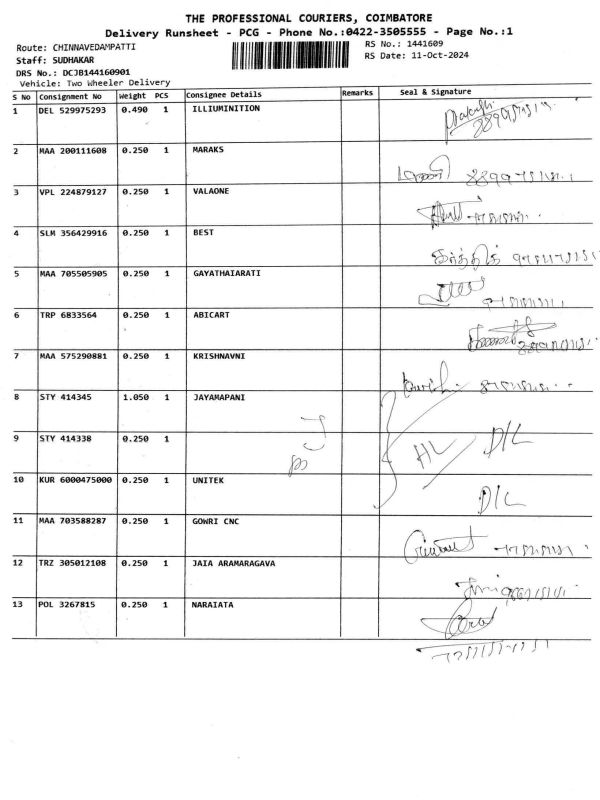 THE PROFESSIONAL COURIERS, COIMBATORE
Delivery Runsheet - PCG - Phone No.:0422-3505555 - Page No.:1
Route: CHINNAVEDAMPATTI
RS No.: 1441609
Staff: SUDHAKAR
RS Date: 11-Oct-2024
DRS No.: DCJB144160901
Vehicle: Two Wheeler Delivery
S No Consignment No Weight PCS Consignee Details Remarks Seal & Signature
1 DEL 529975293 0.490 1 ILLIUMINITION
2 MAA 200111608 0.250 1 MARAKS
3 VPL 224879127 0.250 1 VALAONE
4 SLM 356429916 0.250 1 BEST
கார்த்திக்
5 MAA 705505905 0.250 1 GAYATHAIARATI
6 TRP 6833564 0.250 1 ABICART
7 MAA 575290881 0.250 1 KRISHNAVNI
8 STY 414345 1.050 1 JAYAMAPANI
9 STY 414338 0.250 1
HL D/L
10 KUR 6000475000 0.250 1 UNITEK
D/L
11 MAA 703588287 0.250 1 GOWRI CNC
12 TRZ 305012108 0.250 1 JAIA ARAMARAGAVA
13 POL 3267815 0.250 1 NARAIATA